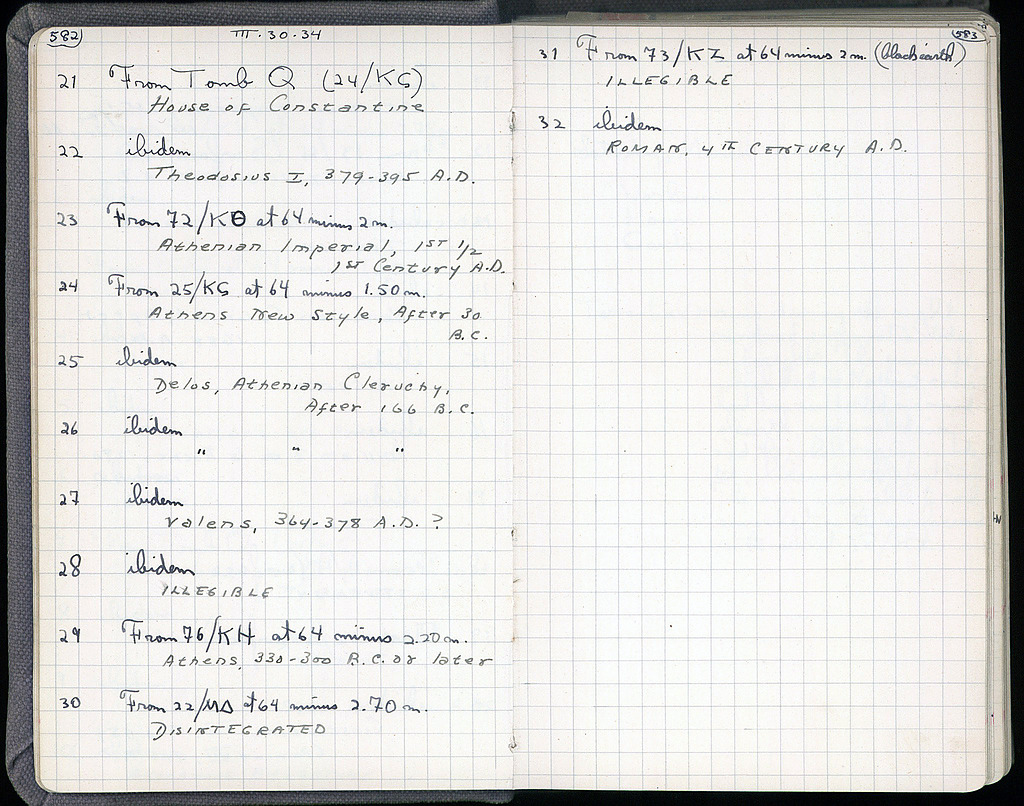 582
III.30.34
21 From Tomb Q (24/KS)
House of Constantine
22 ibidem
Theodosius I, 379-395 A.D.
23 From 72/KΘ at 64 minus 2 m.
Athenian Imperial, 1ST 1/2
1ST Century A.D.
24 From 25/KS at 64 minus 1.50 m.
Athens New Style, After 30
B.C.
25 ibidem
Delos, Athenian Cleruchy,
After 166 B.C.
26 ibidem
" " "
27 ibidem
Valens, 364-378 A.D. ?
28 ibidem
ILLEGIBLE
29 From 76/KH at 64 minus 2.20 m.
Athens, 330-300 B.C. or later
30 From 22/ΜΔ at 64 minus 2.70 m.
DISINTEGRATED
583
31 From 73/KZ at 64 minus 2 m. (black earth)
ILLEGIBLE
32 ibidem
ROMAN, 4TH CENTURY A.D.